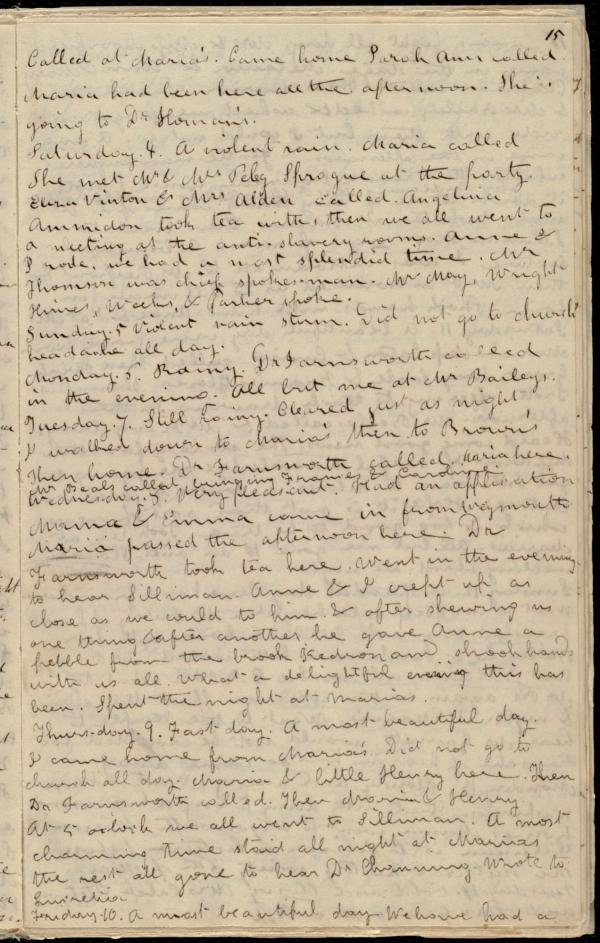 15
Called at Maria's. Came home Sarah Ann called.
Maria had been here all the afternoon. She's
going to Dr Homan's.
Saturday. 4. A violent rain. Maria called
She met Mr & Mrs Peleg Sprague at the party.
Eliza Vinton & Mrs Alden called. Angelina
Ammidon took tea with, then we all went to
a meeting at the anti-slavery rooms. Anne &
I rode, we had a most splendid time. Mr
Thomson was chief spokes-man. Mr May, Wright
Himes, Weeks, & Parker spoke.
Sunday. 5 Violent rain storm. Did not go to church
headache all day.
Monday. 6. Rainy. Dr Farnsworth called
in the evening. All but me at Mr Baileys.
Tuesday 7. Still rainy. Cleared just as night
I walked down to Maria's, then to Brown's
then home. Dr Farnsworth called, Maria here.
Mrs Beals called, bringing Frances & Caroline
Wednesday. 8. Very pleasant. Had an application
Mama & Emma came in from Weymouth
Maria passed the afternoon here. Dr
Farnsworth took tea here. Went in the evening
to hear Silliman. Anne & I crept up as
close as we could to him. & after shewing us
one thing after another he gave Anne a
pebble from the brook Kedron, and shook hands
with us all. What a delightful evening this has
been. Spent the night at Maria's.
Thursday. 9. Fast day. A most beautiful day.
I came home from Maria's. Did not go to
church all day. Maria & little Henry here. Then
Dr Farnsworth called. Then Maria & Henry
At 5 o'clock we all went to Silliman. A most
charming time staid all night at Maria's
the rest all gone to hear Dr Channing. Wrote to
Lucretia
Friday 10. A most beautiful day We have had a